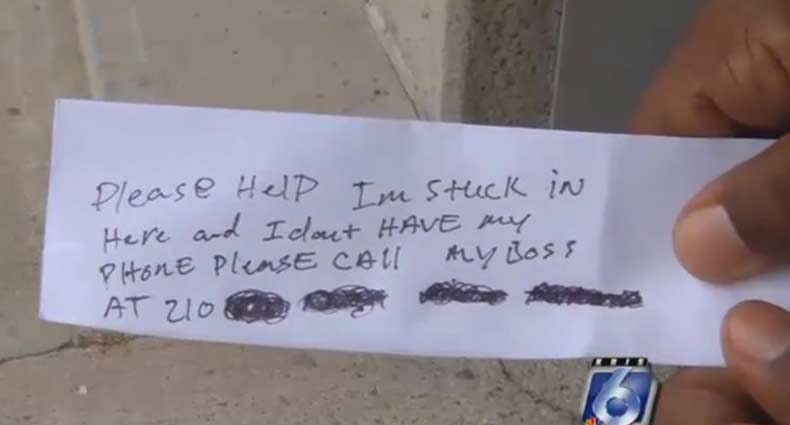 Please Help Im stuck in
Here and I dont HAVE my
PHONE Please CAll MY Boss
AT 210
KRIS
6